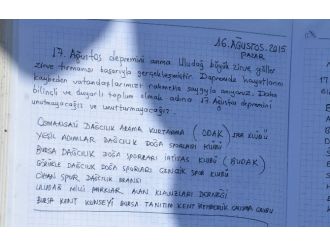 16. AĞUSTOS. 2015
PAZAR
17. Ağustos depremini anma Uludağ büyük zirve göller
zirve tırmanışı başarıyla gerçekleşmiştir. Depremde hayatlarını
kaybeden vatandaşlarımızı rahmetle saygıyla anıyoruz. Daha
bilinçli ve duyarlı toplum olmak adına 17 Ağustos depremini
unutmayacağız ve unutturmayacağız.
OSMANGAZİ DAĞCILIK ARAMA KURTARMA (ODAK) SPOR KLÜBÜ
YEŞİL ADIMLAR DAĞCILIK DOĞA SPORLARI KLÜBÜ
BURSA DAĞCILIK DOĞA SPORLARI İHTİSAS KLUBÜ (BUDAK)
GÖRÜKLE DAĞCILIK DOĞA SPORLARI GENÇLİK SPOR KLUBÜ
SPOR DAĞCILIK BRANŞI
ULUDAĞ MİLLİ PARKLAR ALAN KLAVUZLARI DERNEĞİ
BURSA KENT KONSEYİ BURSA TANITIM KENT REHBERLİK ÇALIŞMA GRUBU